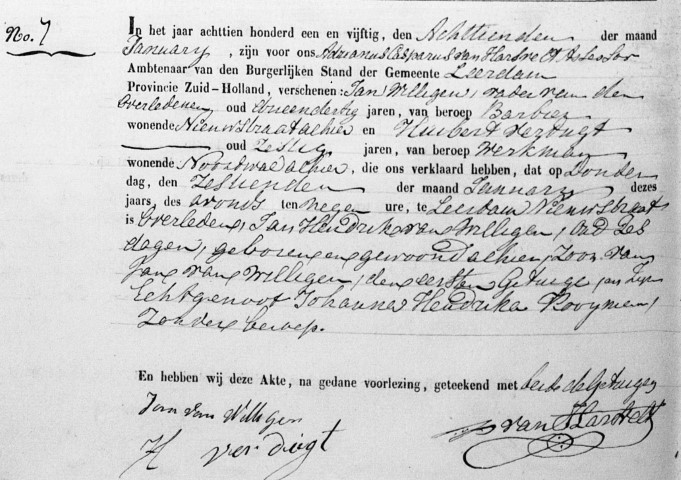 No. 7
In het jaar achttien honderd een en vijftig, den Achttienden der maand
January, zijn voor ons Adrianus Casparus van Hardve
Ambtenaar van den Burgerlijken Stand der Gemeente Leerdam
Provincie Zuid-Holland, verschenen: Jan Willigen, vader van den
overledenen oud jaren, van beroep Barbier
wonende Nieuwstraat alhier en Huibert
oud Zestig jaren, van beroep Werkman
wonende Noordwal alhier, die ons verklaard hebben, dat op Donder
dag, den Zestienden der maand January dezes
jaars, des avonds ten negen ure, te Leerdam Nieuwstraat
is overleden, Jan Hendrik van Willigen, oud zes
dagen, geboren en gewoond alhier, Zoon van
Jan van Willigen, den eersten Getuige, en zijn
Echtgenoot Johanna Hendrika Rooymen,
Zonder beroep.
En hebben wij deze Akte, na gedane voorlezing, geteekend met beide de Getuigen
Jan van Willigen
H ver diegt van Hardvelt